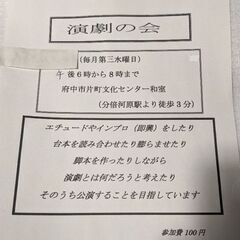 演劇の会
(毎月第三水曜日)
午後6時から8時まで
府中市片町文化センター和室
(分倍河原駅より徒歩3分)
エチュードやインプロ(即興)をしたり
台本を読み合わせたり膨らませたり
脚本を作ったりしながら
演劇とは何だろうと考えたり
そのうち公演することを目指しています
参加費100円